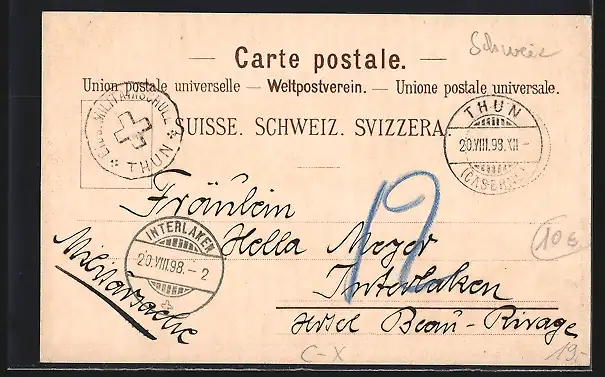 Schweiz
— Carte postale. —
Union postale universelle — Weltpostverein. — Unione postale universale.
EIDG. MILITÄRSCHULE THUN
SUISSE. SCHWEIZ. SVIZZERA.
THUN
20.VIII.98.XII-
(CASERNE)
Fräulein
Hella Meyer
12
INTERLAKEN
20.VIII.98.-2
Militärsache
Interlaken
Hôtel Beau-Rivage
10 €
C-X
19.-